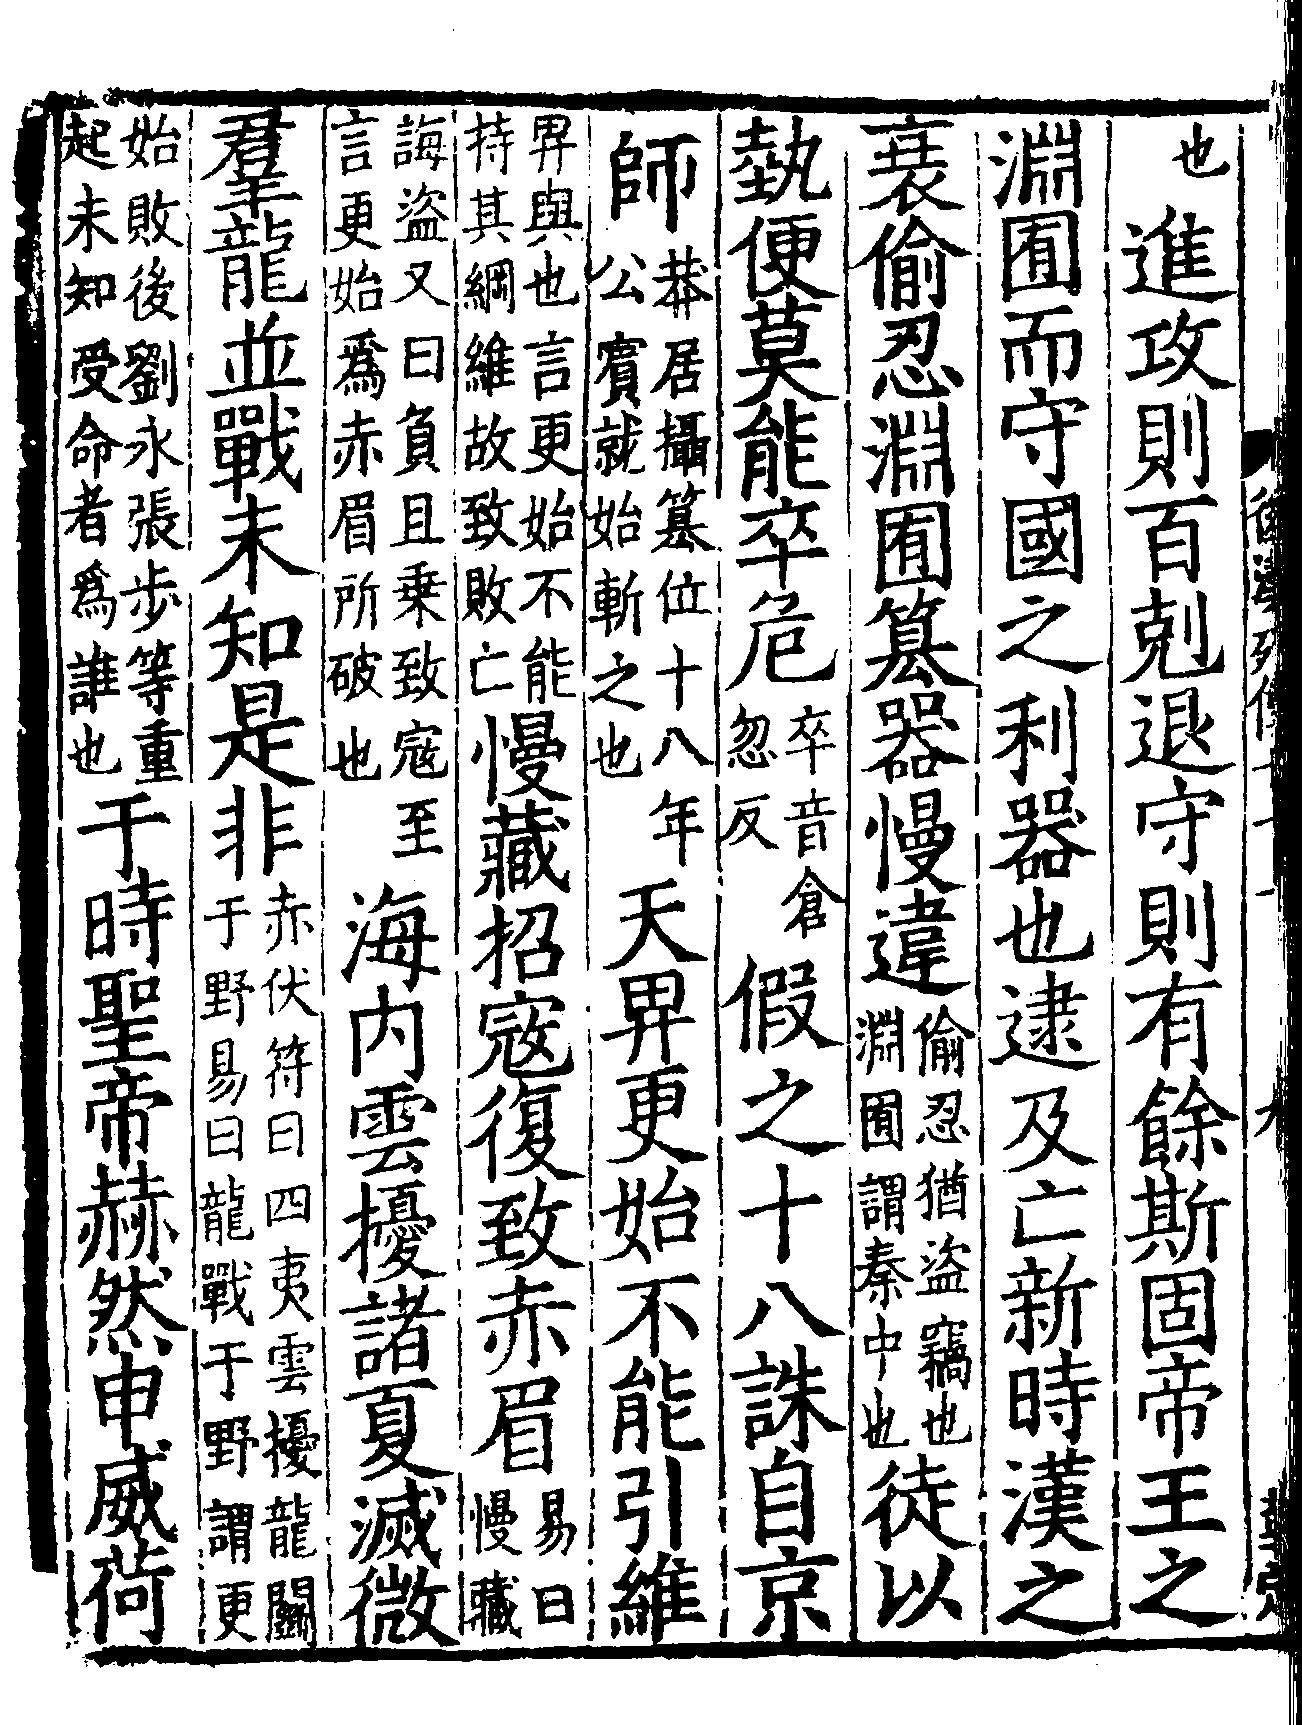 也進攻則百剋退守則有餘斯固帝王之
淵囿而守國之利器也逮及亡新時漢之
衰偷忍淵囿篡器慢違偷忍猶盜竊也淵囿謂秦中也徒以
埶便莫能卒危卒音倉忽反假之十八誅自京
師莽居攝篡位十八年公賓就始斬之也天畀更始不能引維
畀與也言更始不能持其綱維故致敗亡慢藏招寇復致赤眉易曰慢藏
誨盜又曰負且乗致寇至言更始爲赤眉所破也海内雲擾諸夏滅微
羣龍並戰未知是非赤伏符曰四夷雲擾龍鬭于野易曰龍戰于野謂更
始敗後劉永張步等重起未知受命者爲誰也于時聖帝赫然申威荷